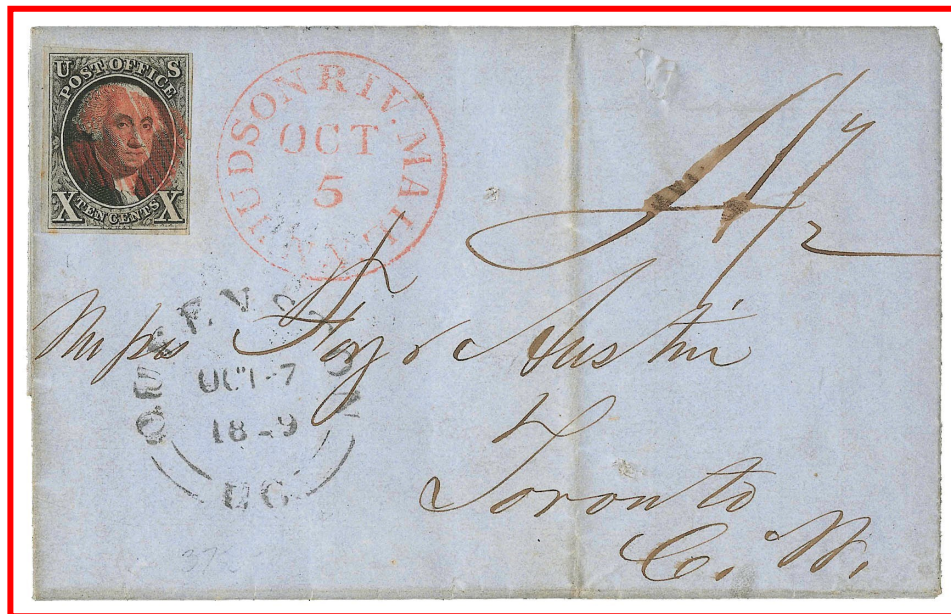 U S
POST OFFICE
X TEN CENTS X
HUDSON RIV. MAIL
OCT
5
4 1/2
QUEENSTON
OCT-7
1849
U.C.
Foy & Austin
Toronto
C. W.
372